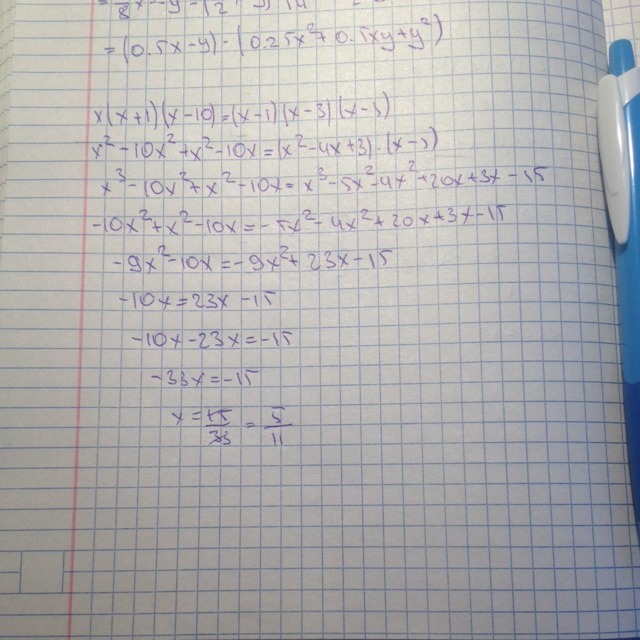 = (0.5x-y) · (0.25x²+0.5xy+y²)
x(x+1)(x-10)=(x-1)(x-3)(x-5)
x²-10x²+x²-10x=(x²-4x+3)·(x-5)
x³-10x²+x²-10x=x³-5x²-4x²+20x+3x-15
-10x²+x²-10x=-5x²-4x²+20x+3x-15
-9x²-10x=-9x²+23x-15
-10x=23x-15
-10x-23x=-15
-33x=-15
x=15/33=5/11